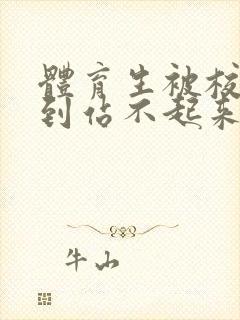 體育生被校
到佔不起來
牛山